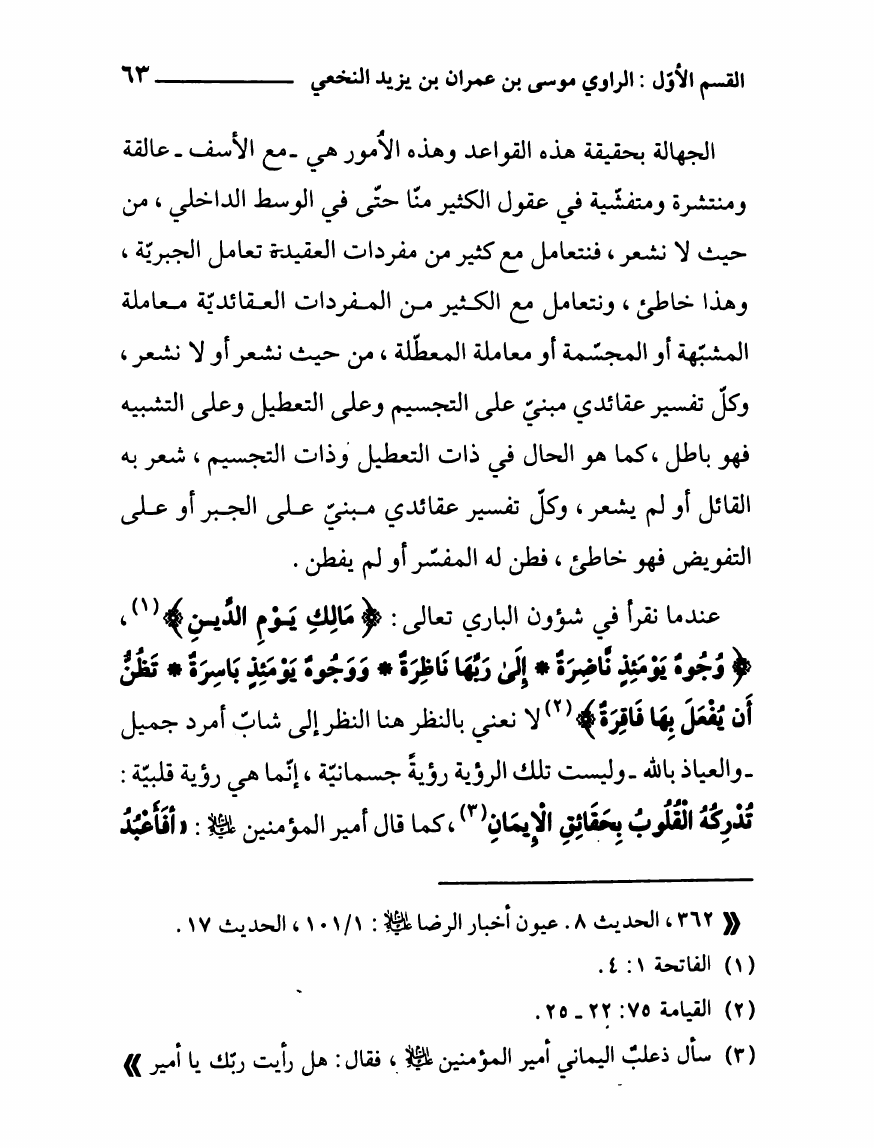 القسم الأوّل : الراوي موسى بن عمران بن يزيد النخعي ـــــــــــــ ٦٣
الجهالة بحقيقة هذه القواعد وهذه الأُمور هي ـ مع الأسف ـ عالقة
ومنتشرة ومتفشّية في عقول الكثير منّا حتّى في الوسط الداخلي ، من
حيث لا نشعر ، فنتعامل مع كثير من مفردات العقيدة تعامل الجبريّة ،
وهذا خاطئ ، ونتعامل مع الكثير من المفردات العقائديّة معاملة
المشبّهة أو المجسّمة أو معاملة المعطّلة ، من حيث نشعر أو لا نشعر ،
وكلّ تفسير عقائدي مبنيّ على التجسيم وعلى التعطيل وعلى التشبيه
فهو باطل ، كما هو الحال في ذات التعطيل وذات التجسيم ، شعر به
القائل أو لم يشعر ، وكلّ تفسير عقائدي مبنيّ على الجبر أو على
التفويض فهو خاطئ ، فطن له المفسّر أو لم يفطن .
عندما نقرأ في شؤون الباري تعالى : ﴿ مَالِكِ يَوْمِ الدِّينِ ﴾ (١) ،
﴿ وُجُوهٌ يَوْمَئِذٍ نَّاضِرَةٌ * إِلَىٰ رَبِّهَا نَاظِرَةٌ * وَوُجُوهٌ يَوْمَئِذٍ بَاسِرَةٌ * تَظُنُّ
أَن يُفْعَلَ بِهَا فَاقِرَةٌ ﴾ (٢) لا نعني بالنظر هنا النظر إلى شابّ أمرد جميل
ـ والعياذ بالله ـ وليست تلك الرؤية رؤيةً جسمانيّة ، إنّما هي رؤية قلبيّة :
تُدْرِكُهُ الْقُلُوبُ بِحَقَائِقِ الْإِيمَانِ (٣) ، كما قال أمير المؤمنين عليه السلام : « أَفَأَعْبُدُ
» ٣٦٢ ، الحديث ٨ . عيون أخبار الرضا عليه السلام : ١٠١/١ ، الحديث ١٧ .
(١) الفاتحة ١ : ٤ .
(٢) القيامة ٧٥ : ٢٢ ـ ٢٥ .
(٣) سأل ذعلبٌ اليماني أمير المؤمنين عليه السلام ، فقال : هل رأيت ربّك يا أمير »